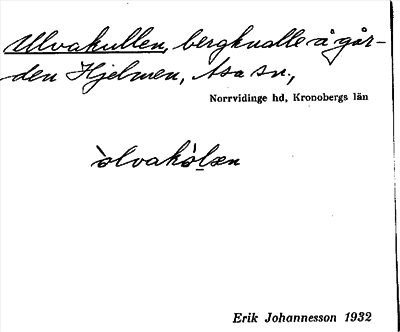 Ulvakullen, bergknalle å går-
den Hjelmen, Asa sn.,
Norrvidinge hd, Kronobergs län
òlvakòlsen
Erik Johannesson 1932